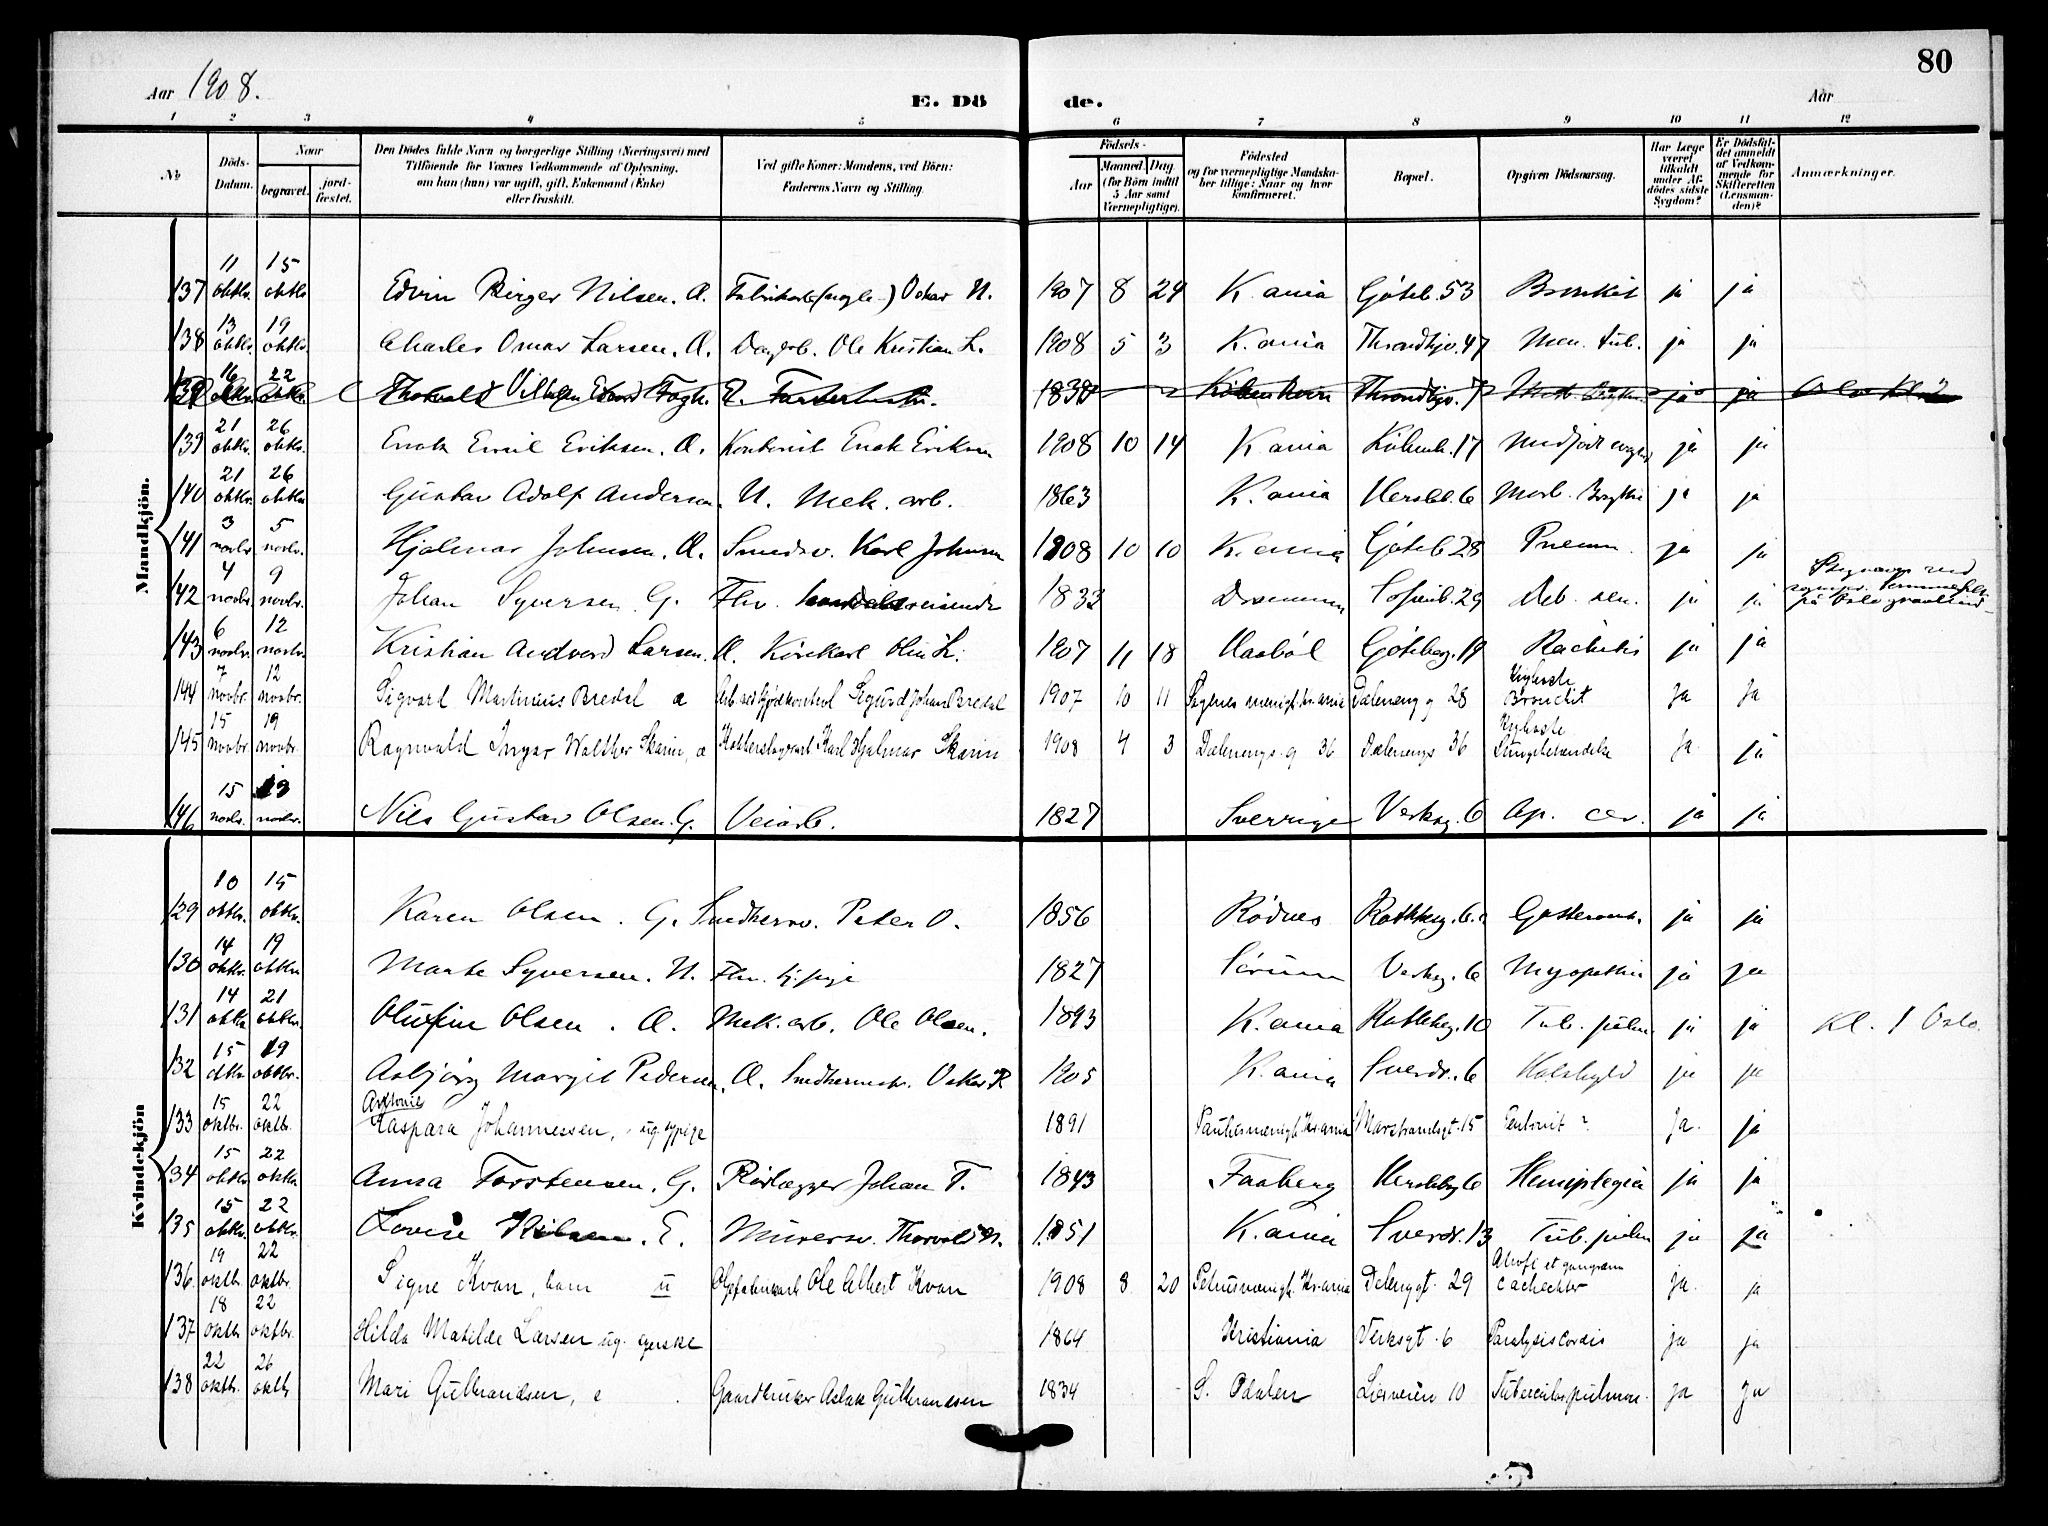 80
Aar 1908.
E. Dö de.
Aar
1 2 3 4 5 6 7 8 9 10 11 12
No
Döds-Datum.
Naar
begravet.
jord-fæstet.
Den Dödes fulde Navn og borgerlige Stilling (Næringsvei) med Tilföiende for Voxnes Vedkommende af Oplysning, om han (hun) var ugift, gift, Enkemand (Enke) eller fraskilt.
Ved gifte Koner: Mandens, ved Börn: Faderens Navn og Stilling.
Födsels-
Aar
Maaned Dag (for Börn indtil 5 Aar samt Værnepligtige).
Födested og for værnepligtige Mandskaber tillige: Naar og hvor konfirmeret.
Bopæl.
Opgiven Dödsaarsag.
Har Læge været tilkaldt under Afdödes sidste Sygdom?
Er Dödsfaldet anmeldt af Vedkommende for Skifteretten (Lensmanden)?
Anmærkninger.
Mandkjön.
137 11 oktbr. 15 oktbr. Edvin Birger Nilsen. A. Oskar N. 1907 8 24 K.ania Göteb. 53 Bronkit ja ja
138 13 oktbr. 19 oktbr. Charles Omar Larsen. A. Dagarb. Ole Kristian L. 1908 5 3 K.ania Throndhjv. 47 Men. tub. ja ja
16 22 Thorvald Vilhelm 1838 Köbenhavn Throndhjv. 7 ja ja Oslo Kl. 2
139 21 oktbr. 26 oktbr. Enok Emil Eriksen. A. Enok Eriksen 1908 10 14 K.ania Köbenh. 17 ja ja
140 21 oktbr. 26 oktbr. Gustav Adolf Andersen. U. Mek. arb. 1863 K.ania Hersleb. 6 Morb. Brightii ja ja
141 3 novbr. 5 novbr. Hjalmar Johnsen. A. Smedsv. Karl Johnsen 1908 10 10 K.ania Göteb. 28 Pneum. ja ja
142 4 novbr. 9 novbr. Johan Syversen. G. Fhv. handelsreisende 1832 Drammen Sofienb. 29 Deb. sen. ja ja på Oslo gravlund
143 6 novbr. 12 novbr. Kristian Andvord Larsen. A. Kjörekarl L. 1907 11 18 Haaböl Götebg. 19 Rachitis ja ja
144 7 novbr. 12 novbr. Sigvart Martinius Bredal a Sigurd Johan Bredal 1907 10 11 Sagenes menigh. kr.ania Dælenengg 28 Kighoste Bronchit Ja Ja
145 15 novbr. 19 novbr. Ragnvald Ingar Walther Skarin, a Karl Hjalmar Skarin 1908 4 3 Dælenengs.g 36 Dælenengs 36 Kighoste Lungebetændelse Ja. ja
146 15 novbr. 19 novbr. Nils Gustav Olsen. G. Veiarb. 1827 Sverrige Verksg. 6 Ap. cer. ja ja
Kvindekjön
129 10 oktbr. 15 oktbr. Karen Olsen. G. Snedkersv. Peter O. 1856 Rödnes Rathkeg. 6. ja ja
130 14 oktbr. 19 oktbr. Marte Syversen. U. Fhv. tj.pige 1827 Sörum Verksg. 6 Myopathia ja ja
131 14 oktbr. 21 oktbr. Olufine Olsen. A. Mek. arb. Ole Olsen. 1893 K.ania Rathkeg. 10 Tub. pulm. ja ja Kl. 1 Oslo.
132 15 oktbr. 19 oktbr. Asbjörg Margit Pedersen. A. Snedkermstr. Oskar P. 1905 K.ania Sverdr. 6 Halsbyld ja ja
133 15 oktbr. 22 oktbr. Kaspara Johannessen, ug. sypige 1891 Paulusmenigh. Kr.ania Marstrandsgt. 15 Peritonit ? Ja. ja
134 15 oktbr. 22 oktbr. Anna Torstensen. G. Rörlægger Johan T. 1843 Faaberg Herslebg 6 Hemiplegia ja ja
135 15 oktbr. 22 oktbr. Lovise Nilsen. E. Murersv. Thorvald N. 1851 K.ania Sverdr. 13 Tub. pulm ja ja
136 19 oktbr. 22 oktbr. Signe Kvan, barn u Ole Albert Kvan 1908 8 20 Petrusmenigh. Kr.ania Delenggt. 29 Atrofi et gangræna cachectior ja. ja
137 18 oktbr 22 oktbr. Hilda Matilde Larsen ug. syerske 1864 Kristiania Verksgt. 6 Paralysis cordis ja ja
138 22 oktbr. 26 oktbr Mari Gulbrandsen, e Gaardbruker Aslak Gulbrandsen 1834 S. Odalen Lierveien 10 Tuberculos. pulmon. Ja Ja